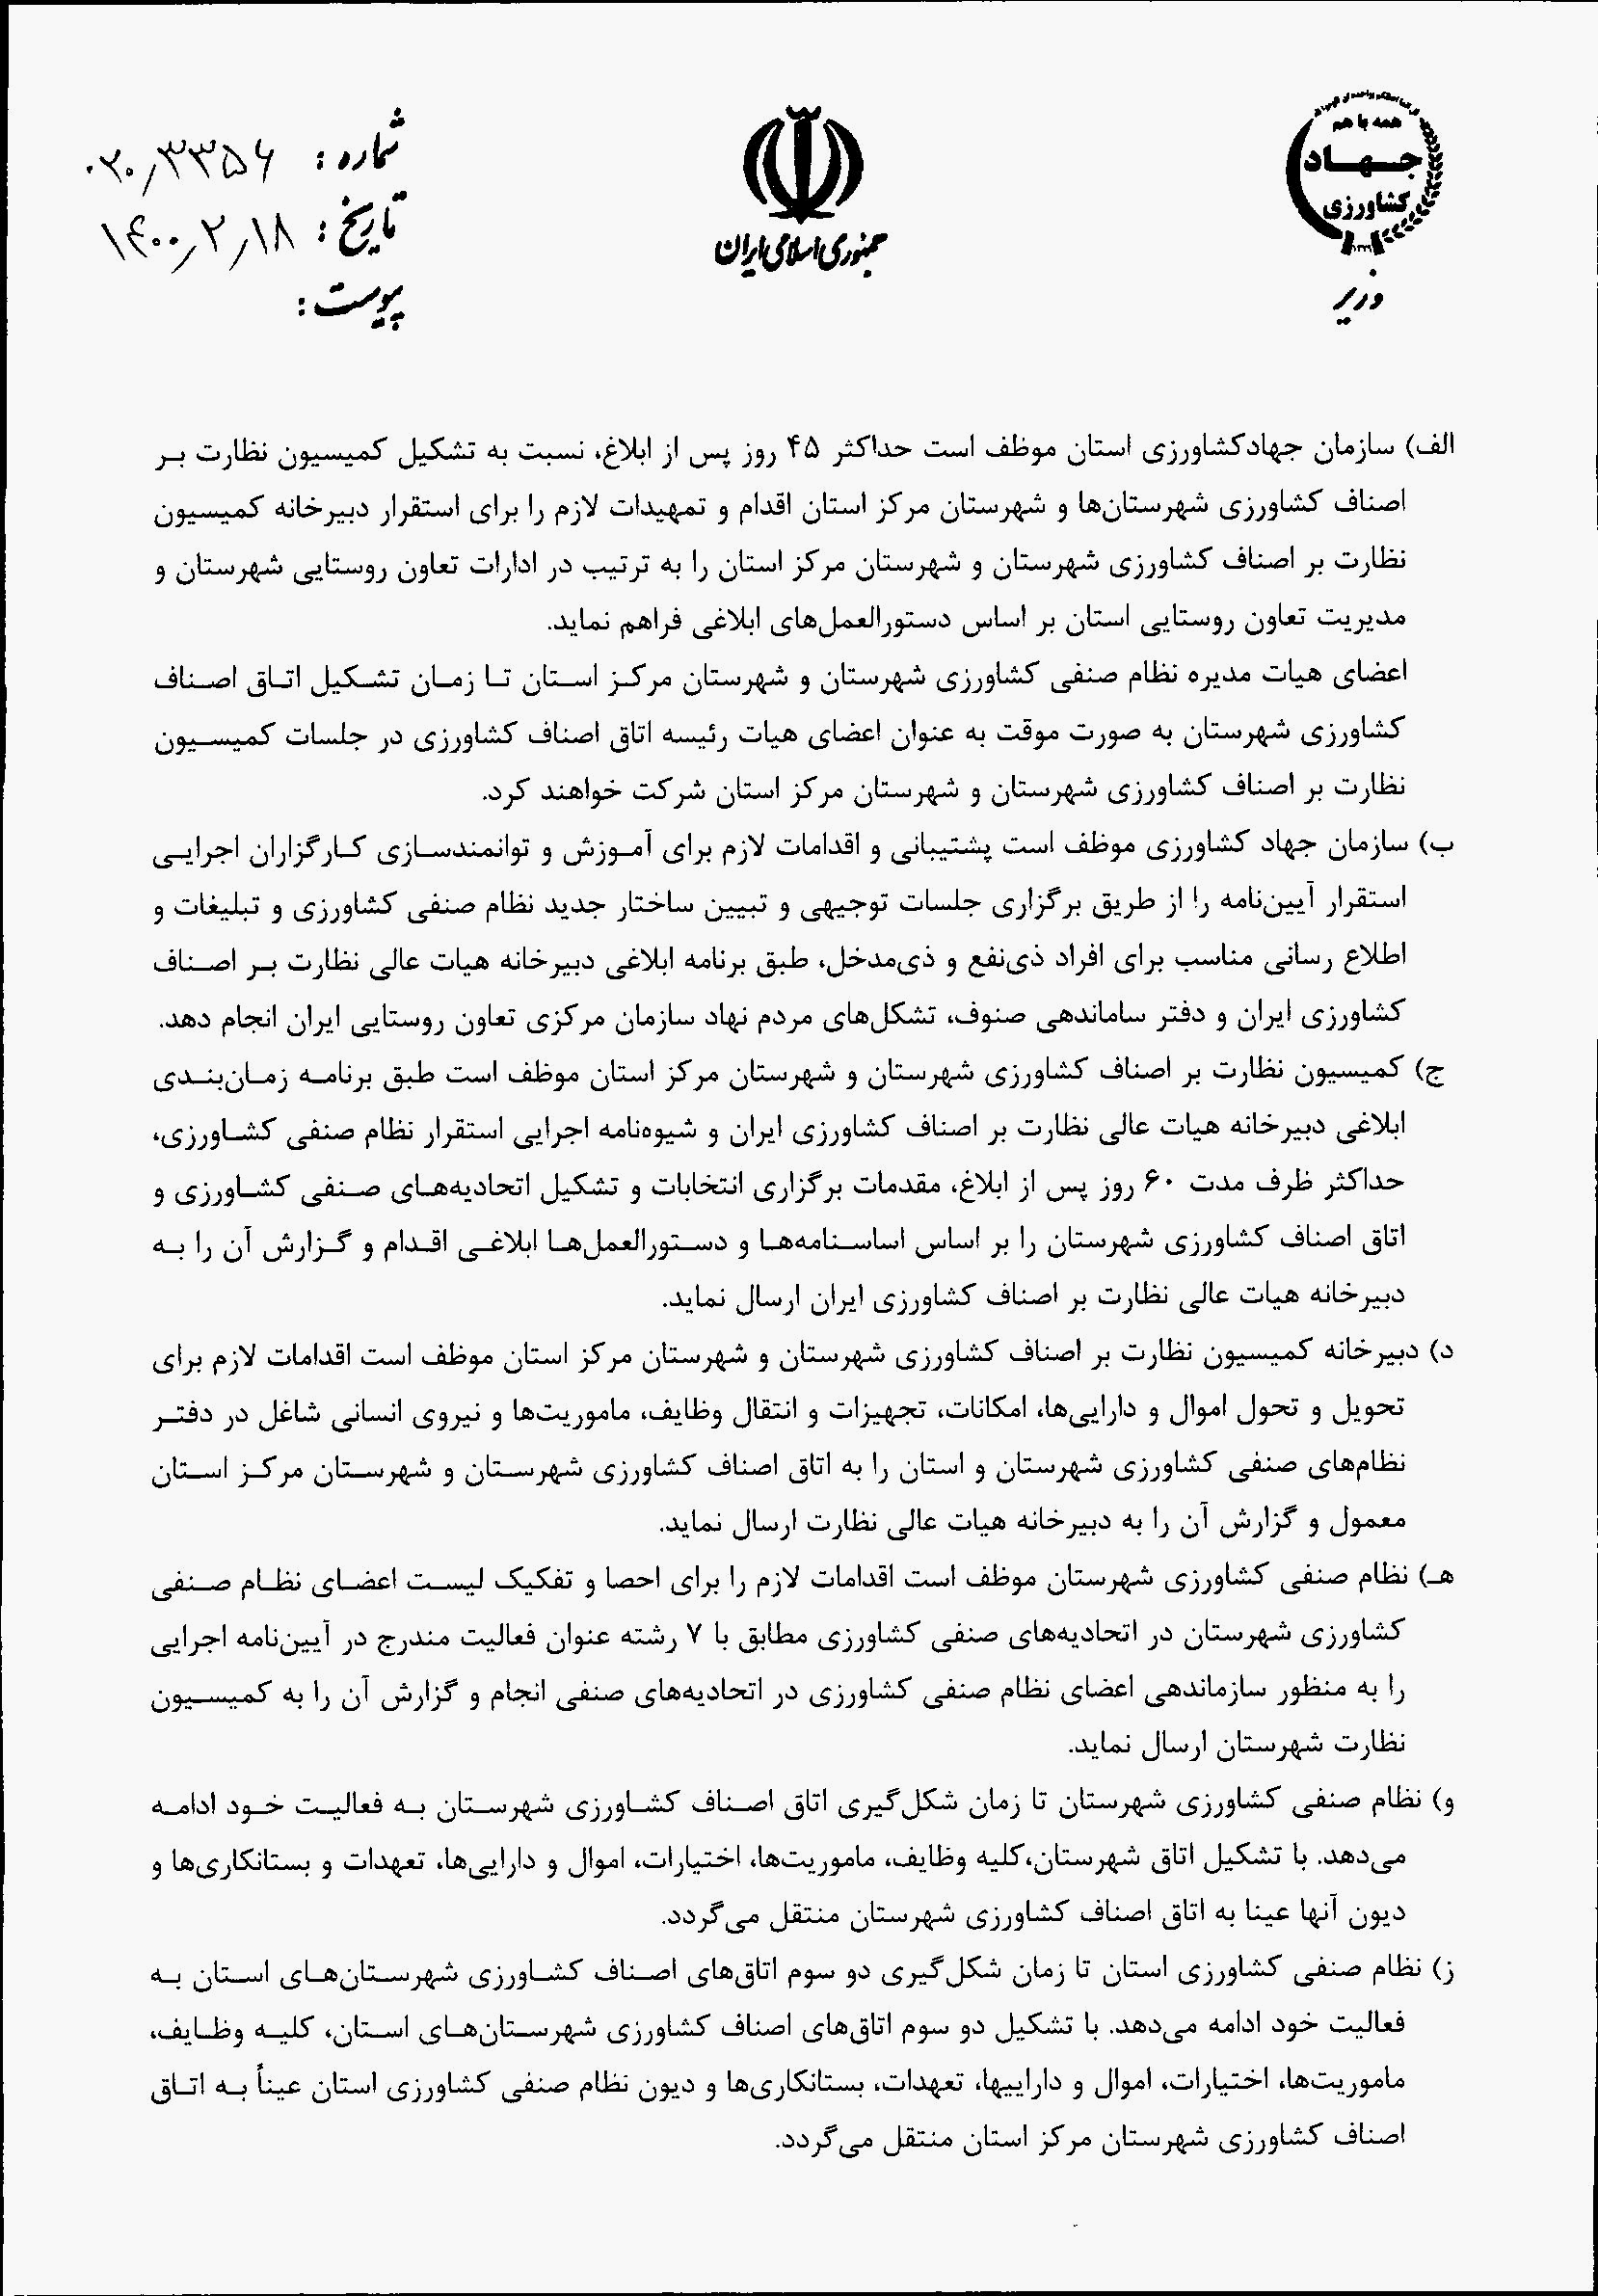 همه با هم
جهاد
کشاورزی
وزیر
جمهوری اسلامی ایران
شماره : ۰۲۰٫۳۳۵۶
تاریخ : ۱۴۰۰٫۲٫۱۸
پیوست :
الف) سازمان جهادکشاورزی استان موظف است حداکثر ۴۵ روز پس از ابلاغ، نسبت به تشکیل کمیسیون نظارت بر
اصناف کشاورزی شهرستان‌ها و شهرستان مرکز استان اقدام و تمهیدات لازم را برای استقرار دبیرخانه کمیسیون
نظارت بر اصناف کشاورزی شهرستان و شهرستان مرکز استان را به ترتیب در ادارات تعاون روستایی شهرستان و
مدیریت تعاون روستایی استان بر اساس دستورالعمل‌های ابلاغی فراهم نماید.
اعضای هیات مدیره نظام صنفی کشاورزی شهرستان و شهرستان مرکز استان تا زمان تشکیل اتاق اصناف
کشاورزی شهرستان به صورت موقت به عنوان اعضای هیات رئیسه اتاق اصناف کشاورزی در جلسات کمیسیون
نظارت بر اصناف کشاورزی شهرستان و شهرستان مرکز استان شرکت خواهند کرد.
ب) سازمان جهاد کشاورزی موظف است پشتیبانی و اقدامات لازم برای آموزش و توانمندسازی کارگزاران اجرایی
استقرار آیین‌نامه را از طریق برگزاری جلسات توجیهی و تبیین ساختار جدید نظام صنفی کشاورزی و تبلیغات و
اطلاع رسانی مناسب برای افراد ذی‌نفع و ذی‌مدخل، طبق برنامه ابلاغی دبیرخانه هیات عالی نظارت بر اصناف
کشاورزی ایران و دفتر ساماندهی صنوف، تشکل‌های مردم نهاد سازمان مرکزی تعاون روستایی ایران انجام دهد.
ج) کمیسیون نظارت بر اصناف کشاورزی شهرستان و شهرستان مرکز استان موظف است طبق برنامه زمان‌بندی
ابلاغی دبیرخانه هیات عالی نظارت بر اصناف کشاورزی ایران و شیوه‌نامه اجرایی استقرار نظام صنفی کشاورزی،
حداکثر ظرف مدت ۶۰ روز پس از ابلاغ، مقدمات برگزاری انتخابات و تشکیل اتحادیه‌های صنفی کشاورزی و
اتاق اصناف کشاورزی شهرستان را بر اساس اساسنامه‌ها و دستورالعمل‌ها ابلاغی اقدام و گزارش آن را به
دبیرخانه هیات عالی نظارت بر اصناف کشاورزی ایران ارسال نماید.
د) دبیرخانه کمیسیون نظارت بر اصناف کشاورزی شهرستان و شهرستان مرکز استان موظف است اقدامات لازم برای
تحویل و تحول اموال و دارایی‌ها، امکانات، تجهیزات و انتقال وظایف، ماموریت‌ها و نیروی انسانی شاغل در دفتر
نظام‌های صنفی کشاورزی شهرستان و استان را به اتاق اصناف کشاورزی شهرستان و شهرستان مرکز استان
معمول و گزارش آن را به دبیرخانه هیات عالی نظارت ارسال نماید.
هـ) نظام صنفی کشاورزی شهرستان موظف است اقدامات لازم را برای احصا و تفکیک لیست اعضای نظام صنفی
کشاورزی شهرستان در اتحادیه‌های صنفی کشاورزی مطابق با ۷ رشته عنوان فعالیت مندرج در آیین‌نامه اجرایی
را به منظور سازماندهی اعضای نظام صنفی کشاورزی در اتحادیه‌های صنفی انجام و گزارش آن را به کمیسیون
نظارت شهرستان ارسال نماید.
و) نظام صنفی کشاورزی شهرستان تا زمان شکل‌گیری اتاق اصناف کشاورزی شهرستان به فعالیت خود ادامه
می‌دهد. با تشکیل اتاق شهرستان،کلیه وظایف، ماموریت‌ها، اختیارات، اموال و دارایی‌ها، تعهدات و بستانکاری‌ها و
دیون آنها عینا به اتاق اصناف کشاورزی شهرستان منتقل می‌گردد.
ز) نظام صنفی کشاورزی استان تا زمان شکل‌گیری دو سوم اتاق‌های اصناف کشاورزی شهرستان‌های استان به
فعالیت خود ادامه می‌دهد. با تشکیل دو سوم اتاق‌های اصناف کشاورزی شهرستان‌های استان، کلیه وظایف،
ماموریت‌ها، اختیارات، اموال و داراییها، تعهدات، بستانکاری‌ها و دیون نظام صنفی کشاورزی استان عیناً به اتاق
اصناف کشاورزی شهرستان مرکز استان منتقل می‌گردد.